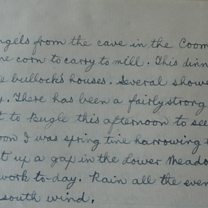 ngels from the cave in the Coom
ne corn to carry to mill. This dinn
e bullock's houses. Several showe
. There has been a fairly strong
t to Bugle this afternoon to see
oon I was spring tine harrowing
t up a gap in the Lower Meado
work to-day. Rain all the even
south wind.